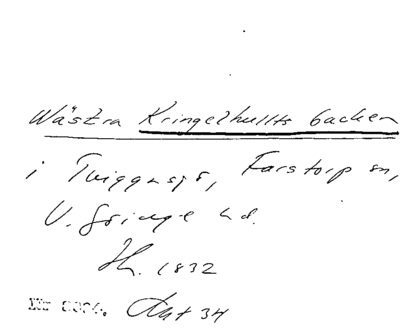 Wästra Kringelhullts backen
i Tviggasjö, Farstorp sn,
V. Göinge hd.
Jh. 1832
Akt 34